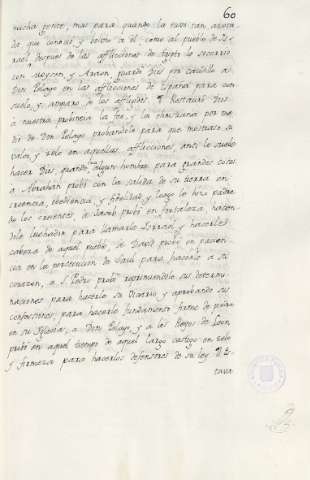 60
mucha gente, mas para quando la tuvo tan apreta
da que conocio y bolvio a el como al pueblo de Is
rael despues de las afflicciones de Egipto lo socorrio
con Moysen y Aaron guardò Dios por caudillo a
Don Pelayo en las afflicciones de España para con
suelo, y amparo de los afligidos. Restaurò Dios
a nuestra probincia la fee, y la christiana por me
dio de Don Pelayo probandolo para que mostrase su
valor, y zelo en aquellas afflicciones, como lo suele
hacer Dios quando algun hombre para grandes cosas
a Abrahan probò con la salida de su tierra en
creencia, obediencia, y fidelidad y luego lo hizo padre
de los creientes, a Jacob probò en fortaleza hacien
dolo luchador para llamarlo Isrrael y hacerle
cabeza de aquel pueblo, a David probò en pacien
cia en la persecucion de Saul para hacerlo a su
corazon, a S. Pedro probò reprimiendole sus determi
naciones para hacerlo su Vicario, y aprobando sus
confesiones, para hacerlo fundamento firme de piedra
en su Iglesia, a Don Pelayo, y a los Reyes de Leon
probò en aquel tiempo de aquel largo castigo en zelo
y firmeza para hacerlos defensores de su ley. Es
tava